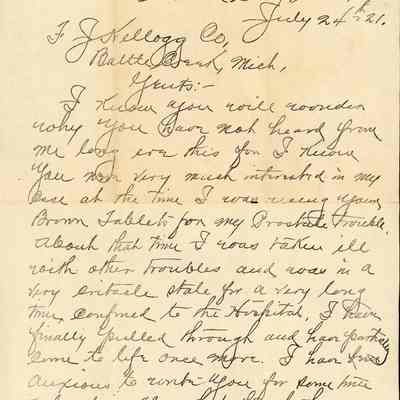 July 24th 21.
F J Kellogg Co,
Battle Creek, Mich,
Gents:-
I know you will wonder
why you have not heard from
me long ere this for I know
you were very much interested in my
case at the time I was using your
Brown Tablets for my Prostate trouble.
About that time I was taken ill
with other troubles and was in a
very critical state for a very long
time, confined to the Hospital, I have
finally pulled through and have partially
come to life once more. I have
anxious to write you for some time